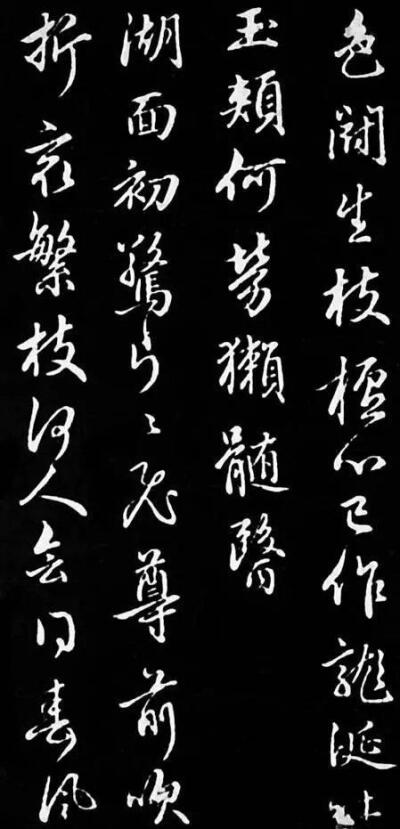 色鬪生枝檀心已作龍涎吐
玉頰何勞獺髓醫
湖面初驚片〻飛尊前吹
折最繁枝何人會得春風